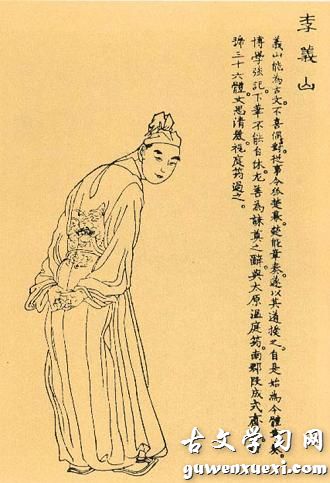 李義山
義山能為古文。不喜偶對。從事令狐楚幕。楚能章奏。遂以其道授之。自是始為今體章奏。
博學強記。下筆不能自休。尤善為誄奠之辭。與太原溫庭筠南郡段成式
號三十六體。文思清麗。視庭筠過之。
古文学习网
guwenxuexi.com